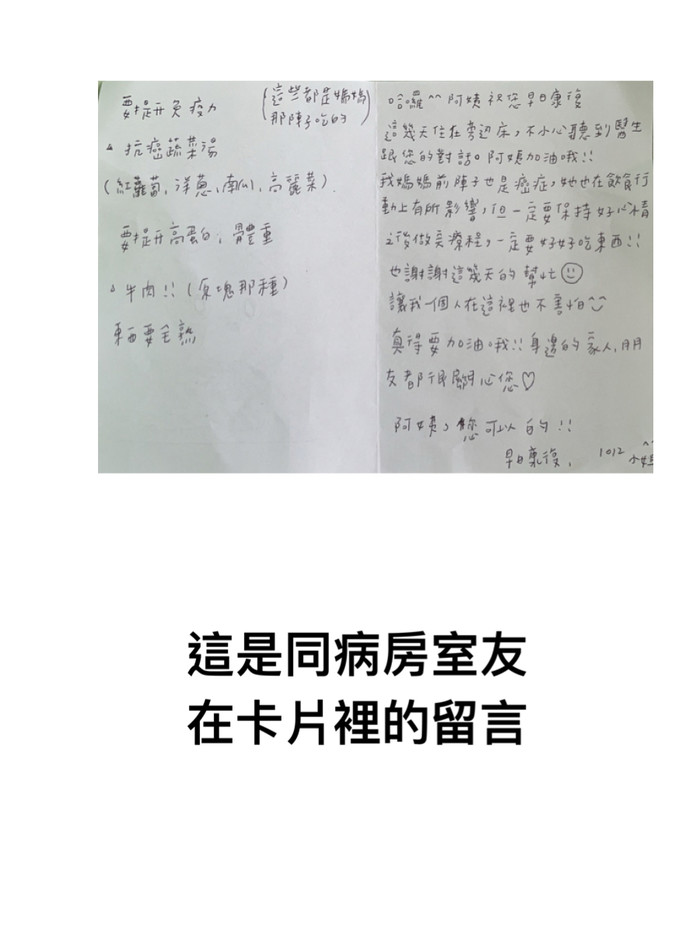 要提升免疫力
(這些都是媽媽
那陣子吃的)
抗癌蔬菜湯
(紅蘿蔔, 洋蔥, 南瓜, 高麗菜).
要提升高蛋白, 體重
牛肉!! (原塊那種)
東西要全熟
哈囉^^ 阿姨祝您早日康復
這幾天住在旁边床, 不小心聽到醫生
跟您的對話。阿姨加油哦!!
我媽媽前陣子也是癌症, 她也在飲食行
動上有所影響, 但一定要保持好心情
之後做完療程, 一定要好好吃東西!!
也謝謝這幾天的幫忙☺
讓我一個人在這裡也不害怕^^
真得要加油哦!! 身邊的家人, 朋
友都很關心您♡
阿姨, 您可以的!!
早日康復. 1012
這是同病房室友
在卡片裡的留言